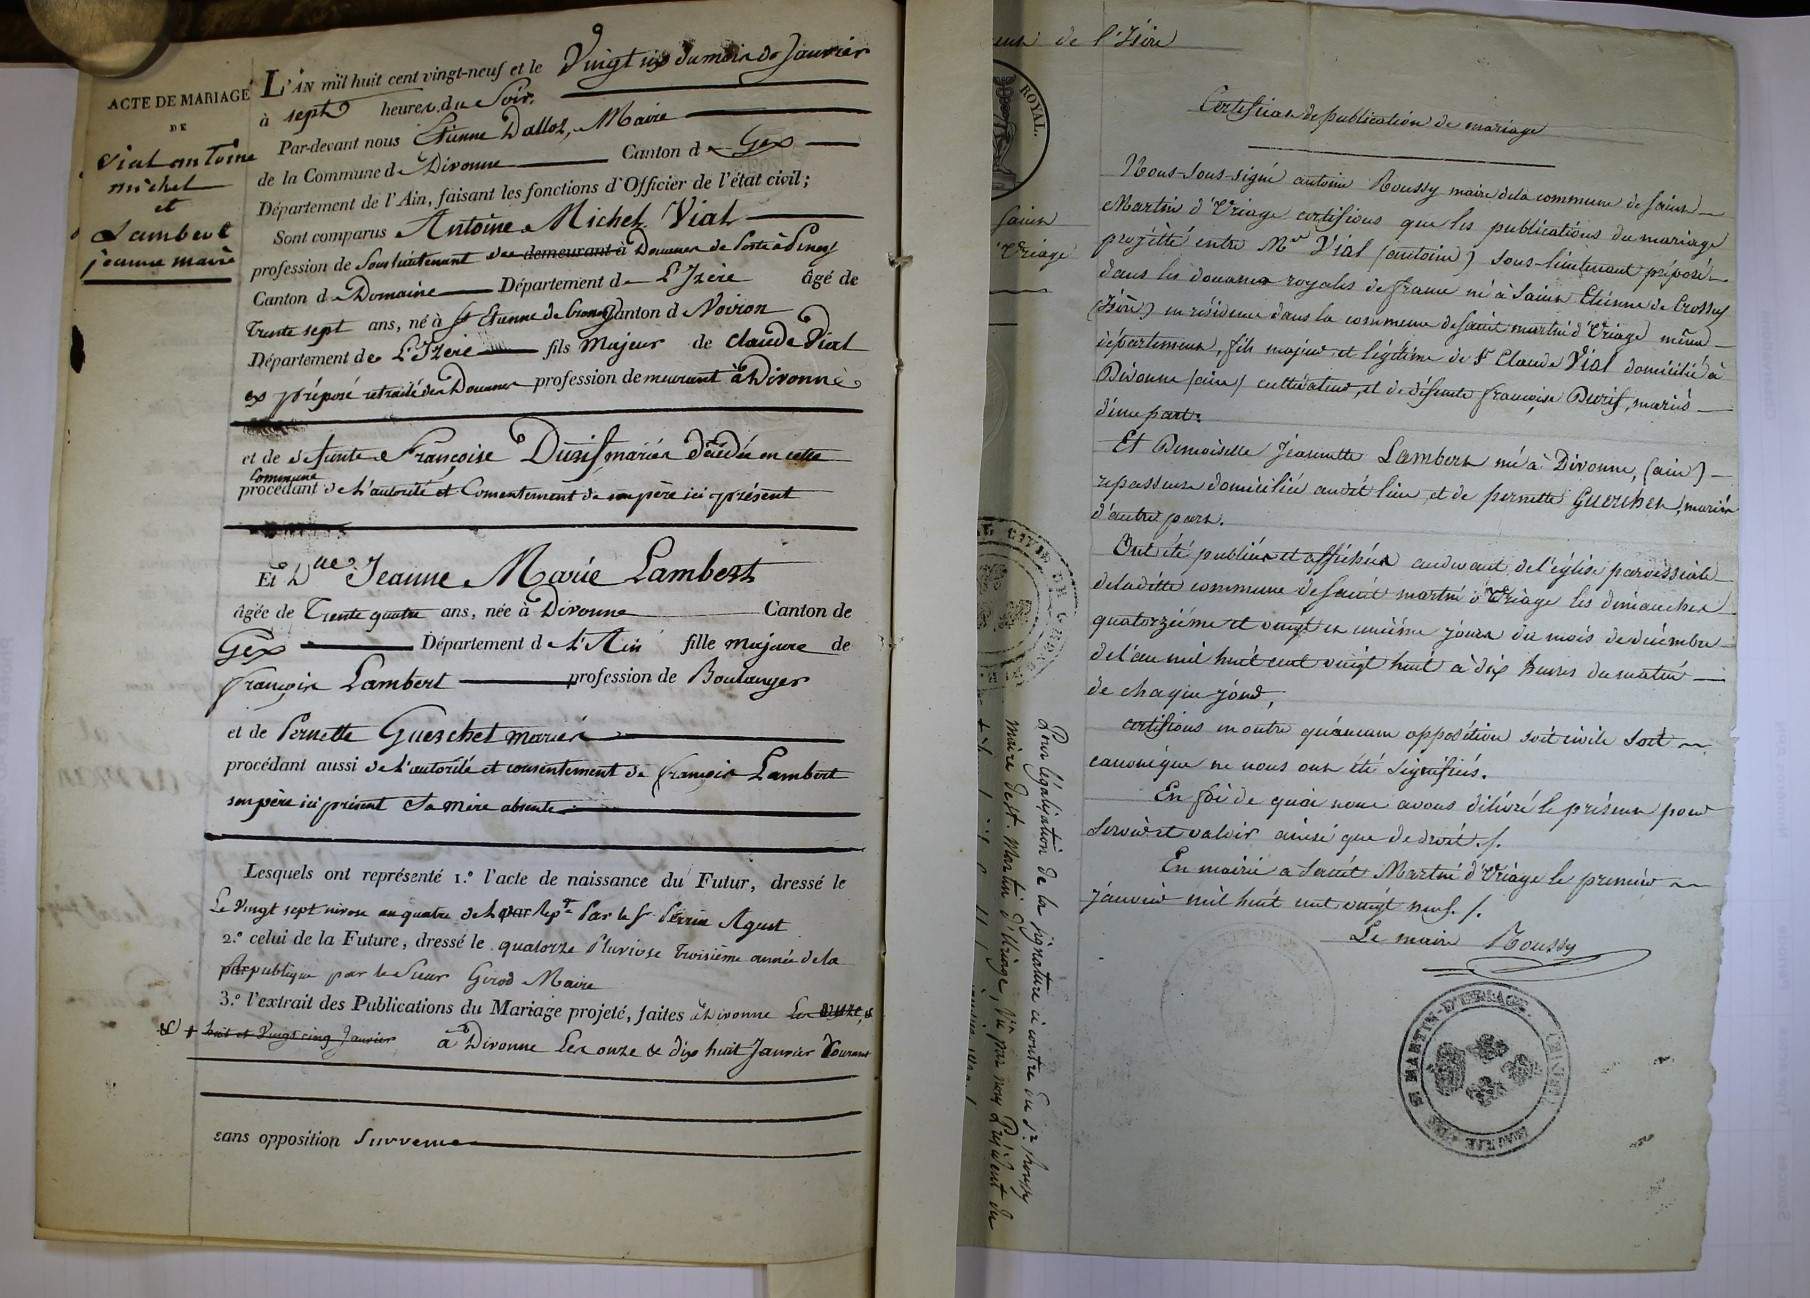 ACTE DE MARIAGE
DE
Vial antoine
michel
et
Lambert
jeanne marie
L'AN mil huit cent vingt-neuf et le Vingt six du mois de Janvier
à sept heures du Soir.
Par-devant nous Etienne Dalloz, Maire
de la Commune d Divonne Canton d Gex
Département de l'Ain, faisant les fonctions d'Officier de l'état civil;
Sont comparus Antoine Michel Vial
profession de Sous lieutenant des demeurant à Douanes de Poste à
Canton d Domaine Département de L'Izère âgé de
Trente sept ans, né à St Etienne de Crossey Canton d Voiron
Département de L'Izère fils Majeur de Claude Vial
ex préposé retraité des Douanes profession demeurant à Divonne
et de defunte Françoise Durif mariés décédée en cette
Commune
procédant de l'autorité et Consentement de son père ici présent
Et Dlle Jeanne Marie Lambert
âgée de Trente quatre ans, née à Divonne Canton de
Gex Département d L'Ain fille majeure de
françois Lambert profession de Boulanger
et de Pernette Guerchet mariés
procédant aussi de l'autorité et consentement de françois Lambert
son père ici présent Sa mère absente
Lesquels ont représenté 1.º l'acte de naissance du Futur, dressé le
Le Vingt sept nivose an quatre de la par Rep. Par le Sr Perrin Agent
2.º celui de la Future, dressé le quatorze Pluviose Troisième année de la
par publique par le Sieur Girod Maire
3.º l'extrait des Publications du Mariage projeté, faites à Divonne Les onze, &
huit et Vingt cinq Janvier à Divonne Les onze & dix huit Janvier Courant
sans opposition Survenue
de l'Isère
ROYAL.
Saint
Uriage
Certificat de publication de mariage
Nous sous-signé antoine Roussy maire de la commune de Saint
Martin d'Uriage certifions que les publications du mariage
projetté entre Mr Vial (antoine) sous-lieutenant préposé
dans les douanes royales de france né à Saint Etienne de Crossey
(Isère) en résidence dans la commune de Saint martin d'Uriage même
département, fils majeur et légitime de Sr Claude Vial domicilié à
Divonne (ain) cultivateur, et de défunte françoise Durif, mariés
d'une part.
Et Demoiselle Jeannette Lambert né à Divonne, (ain)
repasseuse domiciliée audit lieu, et de pernette Guerchet, mariés
d'autre part.
Ont été publiés et affichés au devant de l'église paroissiale
de la dite commune de Saint martin d'Uriage les dimanches
quatorzième et vingt et unième jours du mois de décembre
de l'an mil huit cent vingt huit à dix heures du matin
de chaque jour,
certifions en outre qu'aucune opposition soit civile soit
canonique ne nous ont été signifiés.
En foi de quoi nous avons délivré le présent pour
servir et valoir ainsi que de droit./.
En mairie à Saint Martin d'Uriage le premier
janvier mil huit cent vingt neuf./.
Le maire Roussy
Pour légalisation de la signature ci contre du Sr. Roussy
maire de St. Martin d'Uriage, Vu par nous Président du
MAIRIE DE ST MARTIN-D'URIAGE. (ISERE)